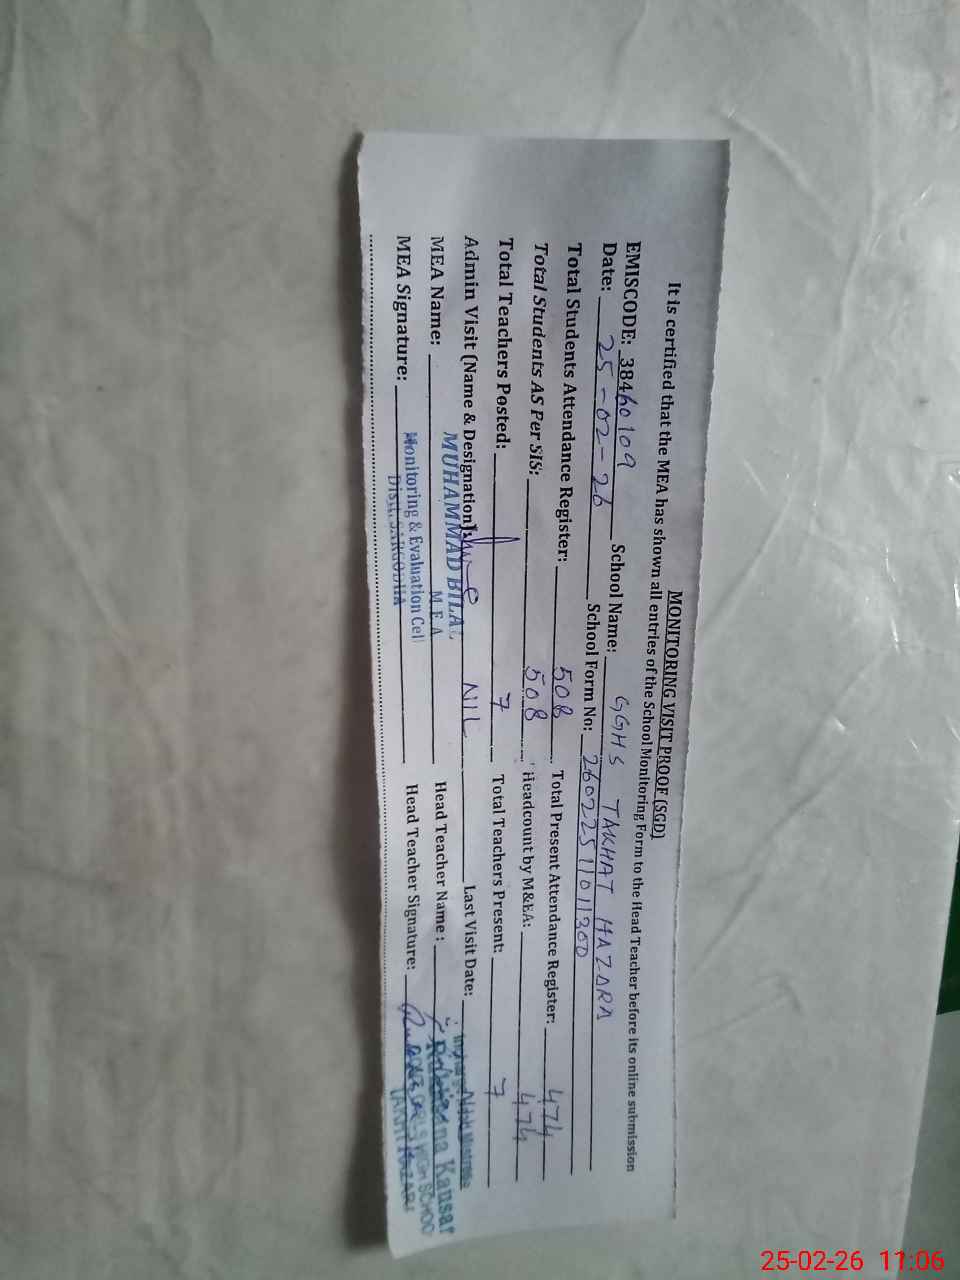 MONITORING VISIT PROOF (SGD)
It is certified that the MEA has shown all entries of the School Monitoring Form to the Head Teacher before its online submission
EMISCODE: 38460109 School Name: GGHS TAKHAT HAZARA
Date: 25-02-26 School Form No: 26022511011300
Total Students Attendance Register: 508 Total Present Attendance Register: 474
Total Students AS Per SIS: 508 Headcount by M&EA: 474
Total Teachers Posted: 7 Total Teachers Present: 7
Admin Visit (Name & Designation): NIL Last Visit Date:
MEA Name: MUHAMMAD BILAL Head Teacher Name: Kausar
M.E.A
MEA Signature: Monitoring & Evaluation Cell Head Teacher Signature: GIRLS HIGH SCHOOL
Distt. SARGODHA TAKHT HAZARA
25-02-26 11:06